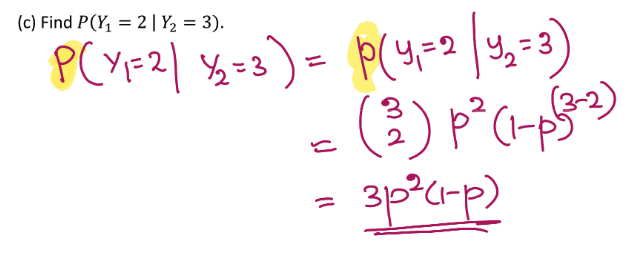 (c) Find P(Y₁ = 2 | Y₂ = 3).
P(Y₁=2 | Y₂=3) = p(y₁=2 | y₂=3)
= (3 2) p²(1-p)⁽³⁻²⁾
= 3p²(1-p)